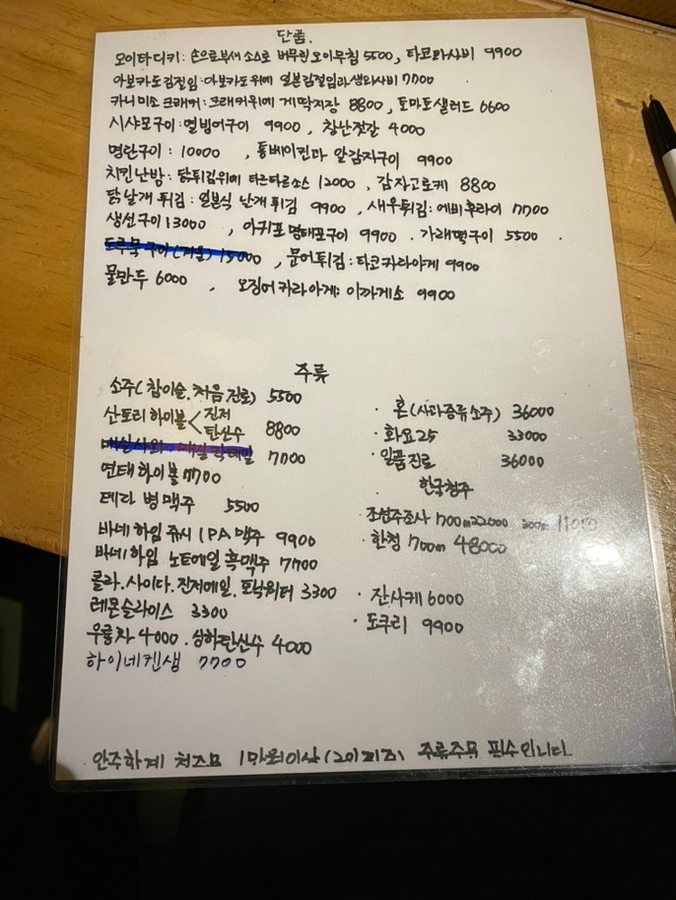 단품.
오이타다키: 손으로부셔 소스로 버무린 오이무침 5500, 타코와사비 9900
아보카도김절임: 아보카도위에 일본김절임과 생와사비 7700
카니미소 크래커: 크래커위에 게딱지장 8800, 토마토샐러드 6600
시샤모구이: 열빙어구이 9900, 창난젓갈 4000
명란구이: 10000, 통베이컨과 알감자구이 9900
치킨난방: 닭튀김위에 타르타르소스 12000, 감자고로케 8800
닭날개 튀김: 일본식 날개 튀김 9900, 새우튀김: 에비후라이 7700
생선구이 13000, 아귀포 명태포구이 9900. 가래떡구이 5500.
도루묵구이(겨울) 15000, 문어튀김: 타코카라아게 9900
물만두 6000, 오징어카라아게: 이까게소 9900
주류
소주(참이슬, 처음, 진로) 5500
산토리 하이볼 < 진저 탄산수 8800
7700
연태하이볼 7700
테라 병맥주 5500
바네하임 쥬시 IPA 맥주 9900
바네하임 노트에일 흑맥주 7700
콜라.사이다.진저에일.토닉워터 3300
레몬슬라이스 3300
우롱차 4000. 상하탄산수 4000
하이네켄생 7700
· 혼(사과증류소주) 36000
· 화요25 33000
· 일품진로 36000
한국청주
· 조선주조사 700m 22000 300m 11000
· 한청 700m 48000
· 잔사케 6000
· 도쿠리 9900
· 안주한개 1만원이상(2인기준) 주류주문 필수입니다.